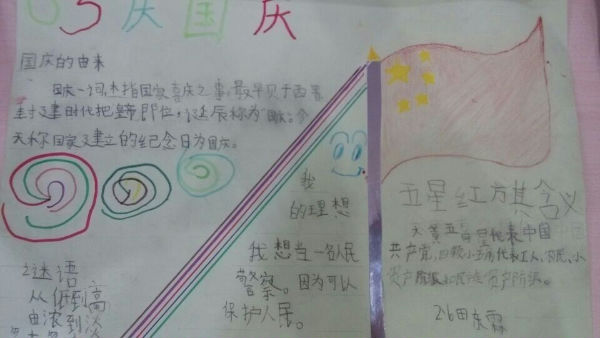 庆国庆
国庆的由来
国庆一词,本指国家喜庆之事,最早见于西晋
封建时代把皇帝即位,诞辰称为"国庆"今
天称国家建立的纪念日为国庆。
谜语
从低到高
由浓到淡
我
的理想
我想当一名人民
警察。因为可以
保护人民。
五星红方其含义
大黄五角星代表中国
共产党,四颗小五角代表工人,农民,小
资产阶级和民族资产阶级。
2.6田东霖